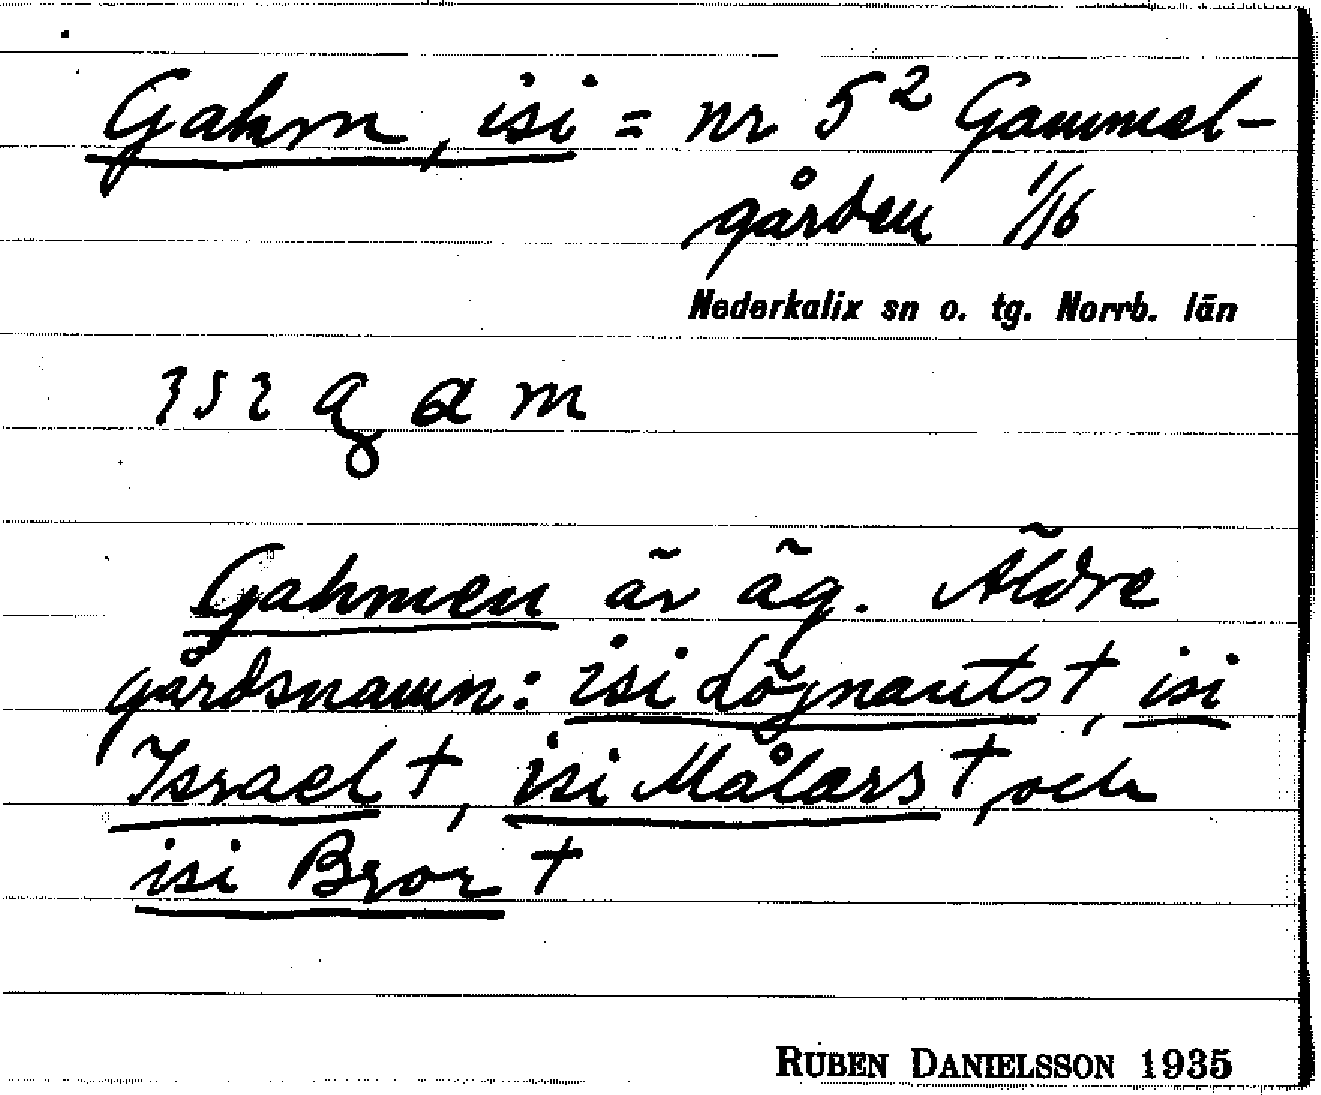 Gahm, isi = nr 5² Gammel-
gården 1/16
Nederkalix sn o. tg. Norrb. län
Gahmen är äg. Äldre
gårdsnamn: isi Lögnauts †, isi
Israel †, isi Målars † och
isi Bror †
RUBEN DANIELSSON 1935